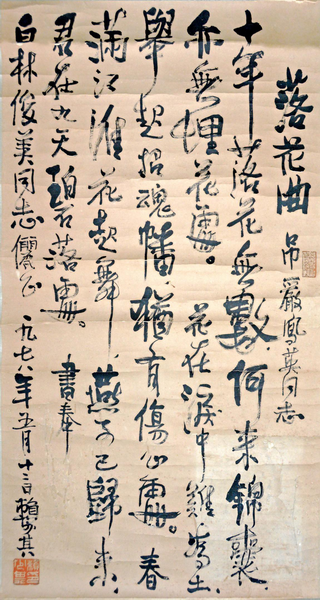 落花曲 吊嚴鳳英同志
十年落花無數,何來錦囊,
亦無埋花處。花在泥中難為土,
舉起招魂幡,猶有傷心處。春
滿江淮花起舞,燕子已歸來,
君在九天碧落處。書奉
白林俊美同志儷正 一九七八年五月十三日賴少其